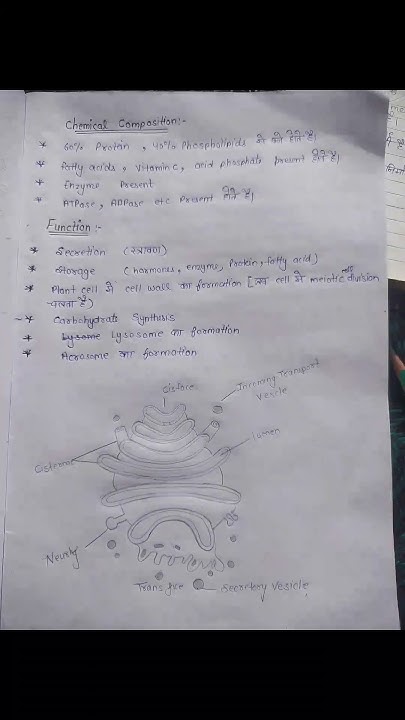 Chemical Composition:-
* 60% Protein, 40% Phospholipids से बने होते है।
* Fatty acids, Vitamin C, acid phosphate present होते है।
* Enzyme Present
* ATPase, ADPase etc Present होते है।
Function:-
* Secretion (स्त्रावण)
* Storage (hormones, enzyme, Protein, fatty acid)
* Plant cell में cell wall का formation [जब cell में meiotic division
चलता है)
* Carbohydrate Synthesis
* Lysosome का formation
* Acrosome का formation
Cisface
Incoming Transport
Vesicle
Lumen
Cisternae
Newely
Trans face
Secretery Vesicle